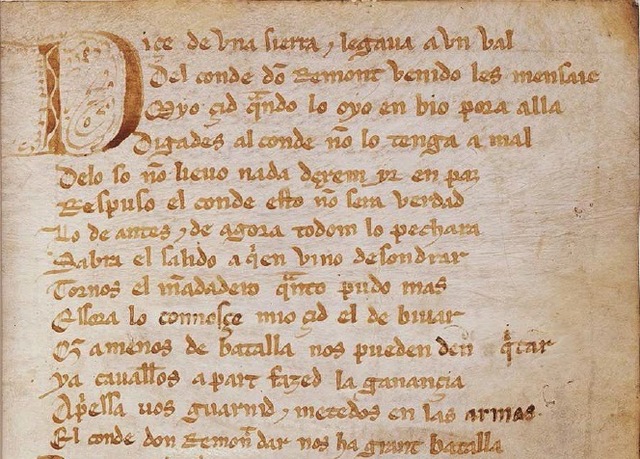 Dice de vna sierra ⁊ legaua a vn val
Del conde dõ Remont venido les mensaie
Myo çid qñdo lo oyo en bio pora alla
Digades al conde nõ lo tenga a mal
Delo so nõ lieuo nada dexem yr en paz
Respuso el conde esto nõ sera verdad
Lo de antes ⁊ de agora todom lo pechara
Sabra el salido a q̃en vino desondrar
Tornos el mãdadero q̃nto pudo mas
Essora lo connosçe mio çid el de biuar
Q̃ a menos de batalla nos pueden den q̃tar
ya caualłos apart fazed la ganançia
Ap̃essa uos guarnid ⁊ metedos en las armas
El conde don Remõ dar nos ha grant batalla